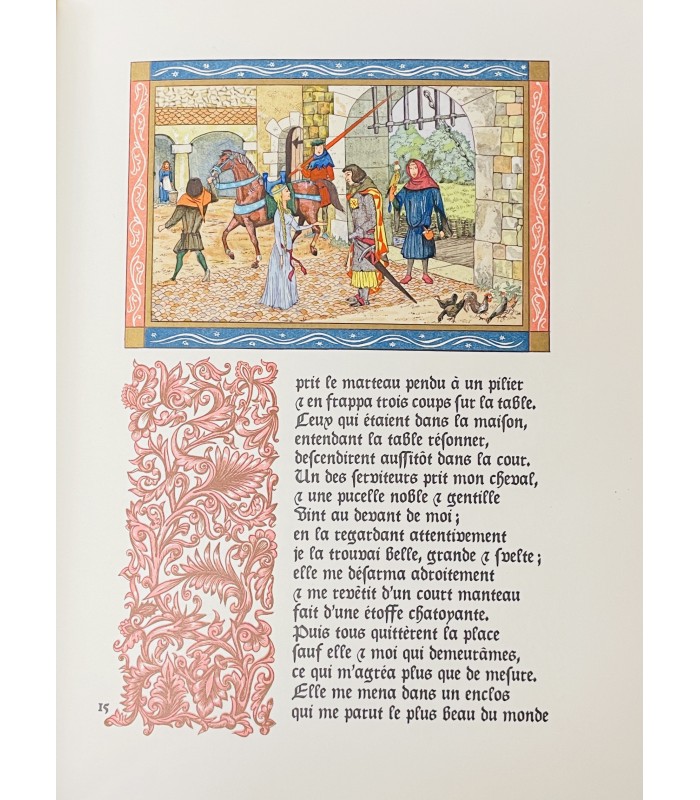 prit le marteau pendu à un pilier
⁊ en frappa trois coups sur la table.
Ceux qui étaient dans la maison,
entendant la table résonner,
descendirent aussitôt dans la cour.
Un des serviteurs prit mon cheval,
⁊ une pucelle noble ⁊ gentille
Vint au devant de moi ;
en la regardant attentivement
je la trouvai belle, grande ⁊ svelte ;
elle me désarma adroitement
⁊ me revêtit d'un court manteau
fait d'une étoffe chatoyante.
Puis tous quittèrent la place
sauf elle ⁊ moi qui demeurâmes,
ce qui m'agréa plus que de mesure.
Elle me mena dans un enclos
qui me parut le plus beau du monde
15